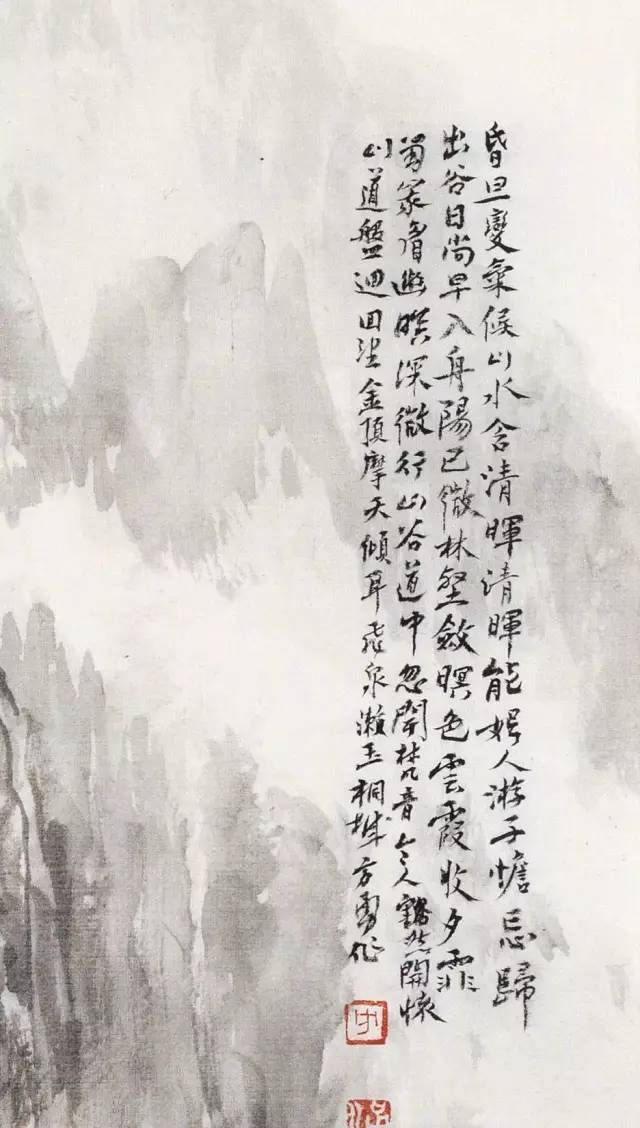 昏旦變氣候山水含清暉清暉能娛人游子憺忘歸
出谷日尚早入舟陽已微林壑斂暝色雲霞收夕霏
眉幽暝深微行山谷道中忽聞梵音令人豁然開懷
山道盤迴回望金頂摩天傾耳飛泉瀨玉桐城方勇作